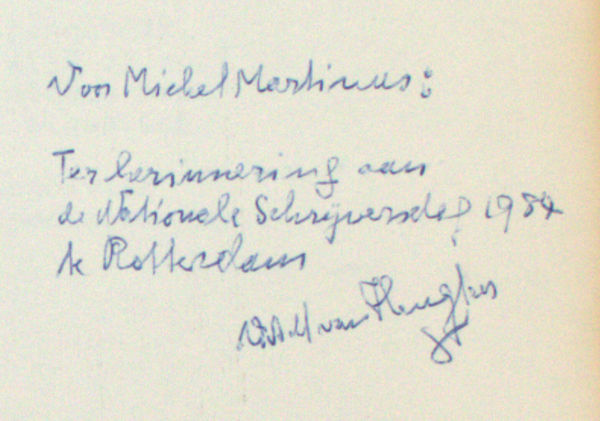 Voor Michel Martinus:
Ter herinnering aan
de Nationale Schrijversdag 1984
te Rotterdam
van